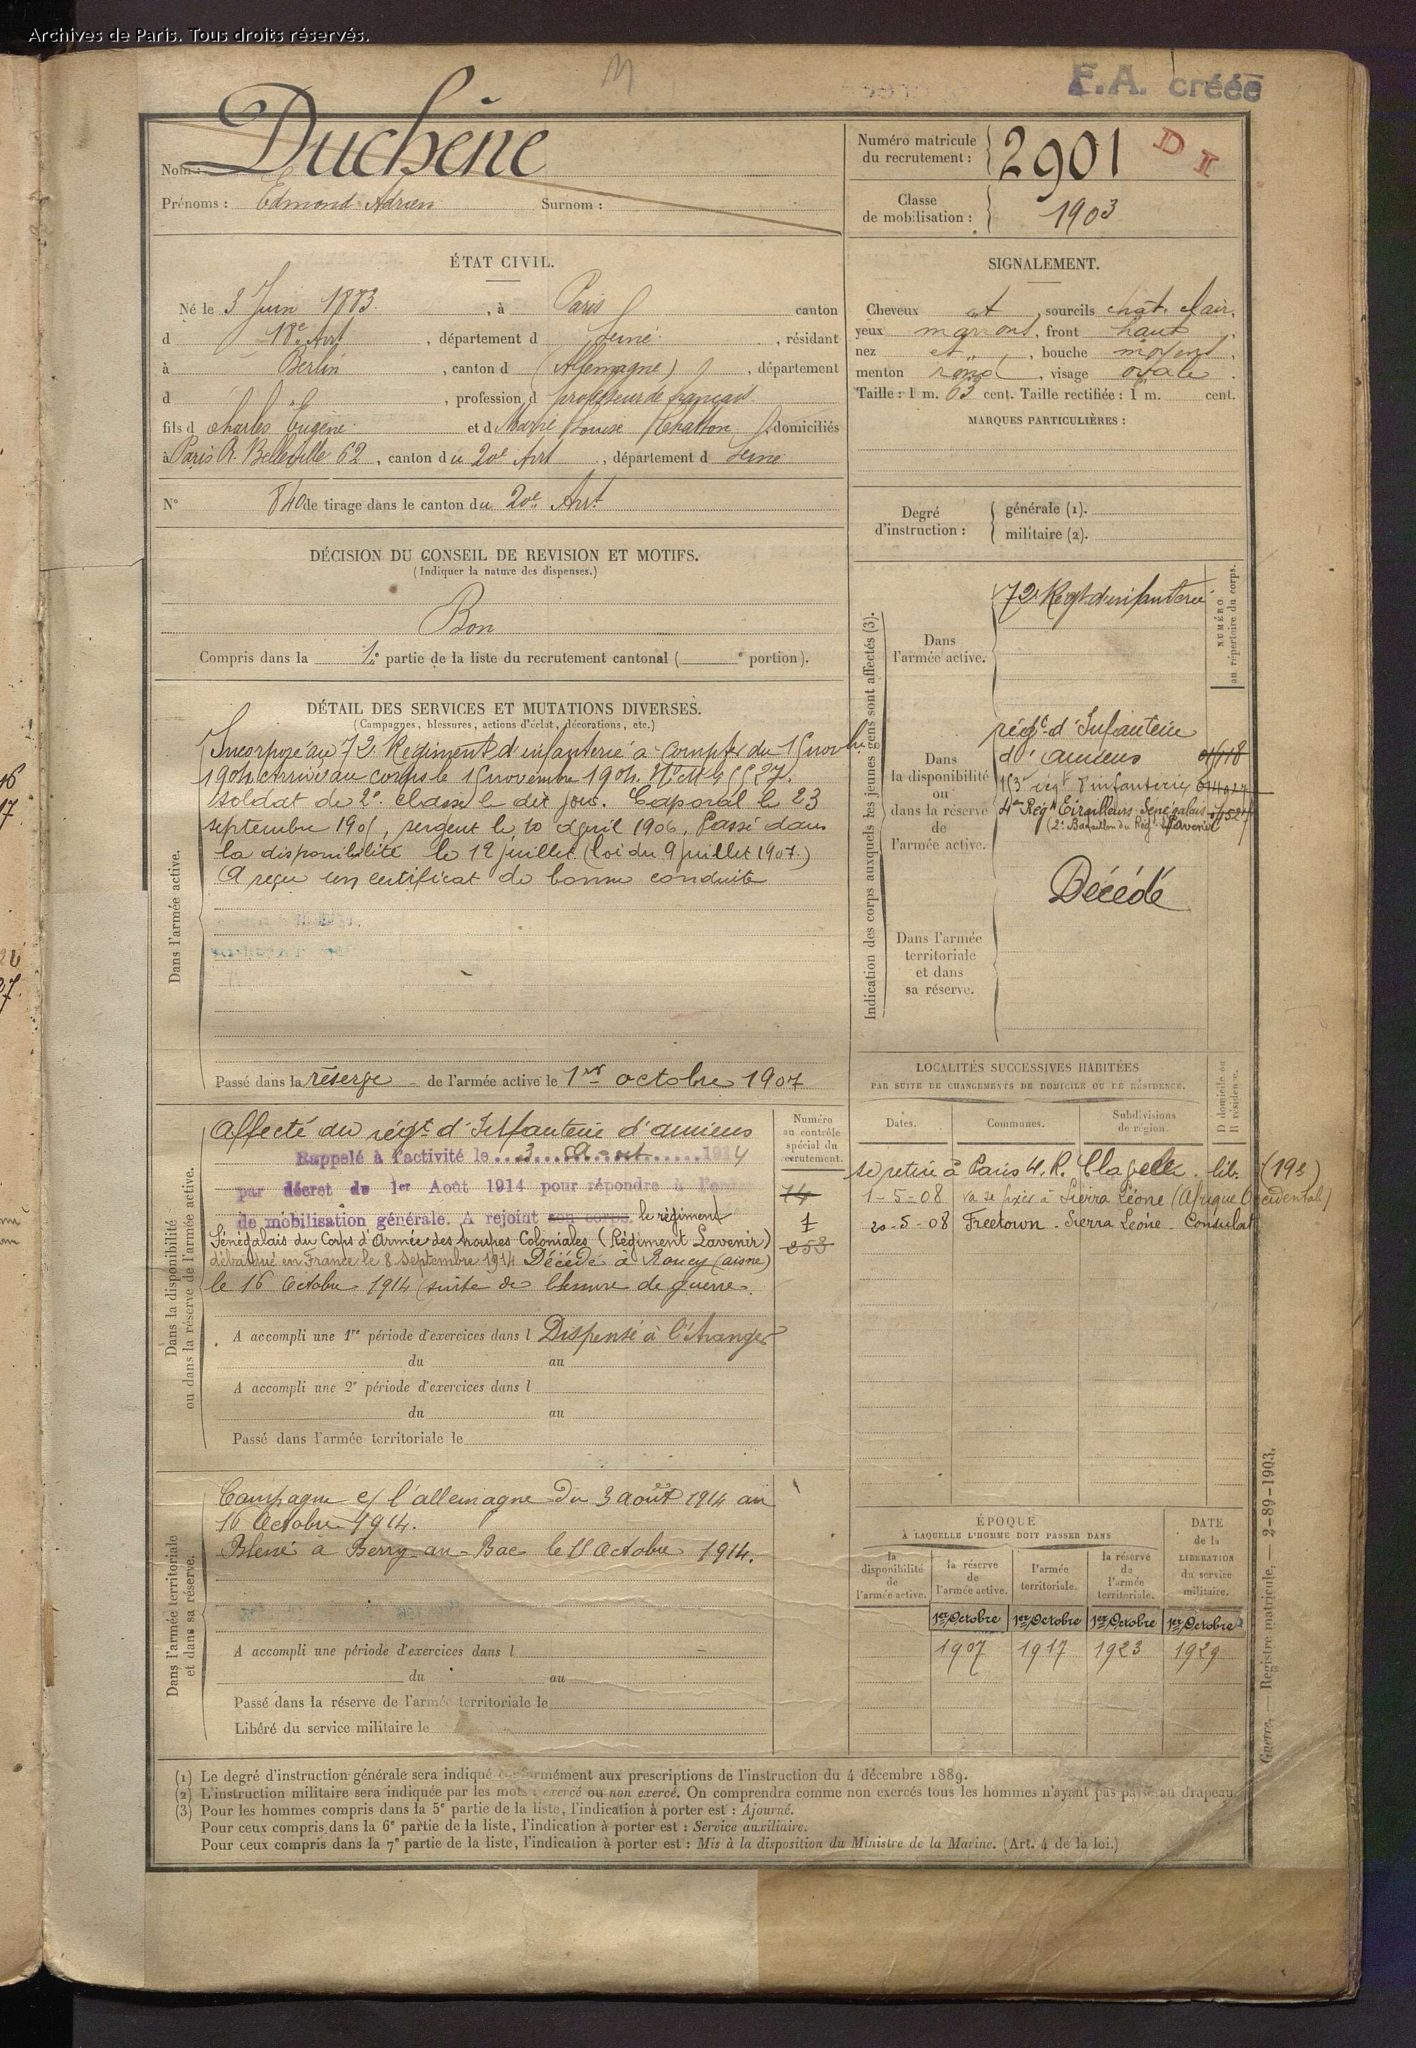 Archives de Paris. Tous droits réservés.
F.A. créée
Nom : Duchêne
Prénoms : Edmond Adrien Surnom :
Numéro matricule du recrutement : 2901
D I
Classe de mobilisation : 1903
ÉTAT CIVIL.
Né le 3 Juin 1883, à Paris canton
d 18e Arrt, département d Seine, résidant
à Berlin, canton d (Allemagne), département
d , profession d professeur de français
fils d Charles Eugène et d Marie Louise domiciliés
à Paris R. Belleville 62, canton du 20e Arrt, département d Seine
N° 840 de tirage dans le canton du 20e Arrt
SIGNALEMENT.
Cheveux et, sourcils chât. clair,
yeux marrons, front haut,
nez , bouche moyenne,
menton rond, visage ovale.
Taille : 1 m. 63 cent. Taille rectifiée : 1 m. cent.
MARQUES PARTICULIÈRES :
Degré d'instruction : générale (1).
militaire (2).
DÉCISION DU CONSEIL DE REVISION ET MOTIFS.
(Indiquer la nature des dispenses.)
Bon
Compris dans la 1e partie de la liste du recrutement cantonal ( e portion).
DÉTAIL DES SERVICES ET MUTATIONS DIVERSES.
(Campagnes, blessures, actions d'éclat, décorations, etc.)
Dans l'armée active.
Incorporé au 72e Régiment d'infanterie à compter du 15 novbre
1904. Arrivé au corps le 15 novembre 1904. No Mle
soldat de 2e classe le dit jour. Caporal le 23
septembre 1905, sergent le 10 avril 1906. Passé dans
la disponibilité le 12 juillet (loi du 9 juillet 1907.)
A reçu un certificat de bonne conduite
Passé dans la réserve de l'armée active le 1er octobre 1907
Indication des corps auxquels les jeunes gens sont affectés (3).
NUMÉRO au répertoire du corps.
Dans l'armée active.
72e Regt d'infanterie
Dans la disponibilité ou dans la réserve de l'armée active.
régt d'Infanterie
d'amiens
153e régt d'infanterie
4e Régt Tirailleurs Sénégalais
(2e Bataillon du Régt Lavenir)
Décédé
Dans l'armée territoriale et dans sa réserve.
Dans la disponibilité ou dans la réserve de l'armée active.
Affecté au régt d'Infanterie d'amiens
Rappelé à l'activité le 3 Août 1914
par décret du 1er Août 1914 pour répondre à l'ordre
de mobilisation générale. A rejoint son corps. le régiment
Sénégalais du Corps d'Armée des troupes Coloniales (Régiment Lavenir)
débarqué en France le 8 Septembre 1914 Décédé à Roucy (aisne)
le 16 Octobre 1914 (suite de blessure de guerre.
A accompli une 1re période d'exercices dans l Dispensé à l'étranger
du au
A accompli une 2e période d'exercices dans l
du au
Passé dans l'armée territoriale le
Numéro au contrôle spécial du recrutement.
74
1
253
LOCALITÉS SUCCESSIVES HABITÉES
PAR SUITE DE CHANGEMENTS DE DOMICILE OU DE RÉSIDENCE.
Dates. Communes. Subdivisions de région. D domicile ou R résidence.
se retire à Paris 4. R. lib. (19e)
1-5-08 va se fixer à Sierra Léone (Afrique Occidentale)
20-5-08 Freetown - Sierra Léone - Consulat
Dans l'armée territoriale et dans sa réserve.
Campagne c/ l'allemagne du 3 août 1914 au
16 Octobre 1914.
Blessé à Berry-au-Bac le 11 Octobre 1914.
A accompli une période d'exercices dans l
du au
Passé dans la réserve de l'armée territoriale le
Libéré du service militaire le
ÉPOQUE À LAQUELLE L'HOMME DOIT PASSER DANS
la disponibilité de l'armée active. la réserve de l'armée active. l'armée territoriale. la réserve de l'armée territoriale.
DATE de la LIBÉRATION du service militaire.
1er Octobre 1er Octobre 1er Octobre 1er Octobre
1907 1917 1923 1929
Guerre. — Registre matricule. — 2-89-1903.
(1) Le degré d'instruction générale sera indiqué conformément aux prescriptions de l'instruction du 4 décembre 1889.
(2) L'instruction militaire sera indiquée par les mots : exercé ou non exercé. On comprendra comme non exercés tous les hommes n'ayant pas passé au drapeau.
(3) Pour les hommes compris dans la 5e partie de la liste, l'indication à porter est : Ajourné.
Pour ceux compris dans la 6e partie de la liste, l'indication à porter est : Service auxiliaire.
Pour ceux compris dans la 7e partie de la liste, l'indication à porter est : Mis à la disposition du Ministre de la Marine. (Art. 4 de la loi.)